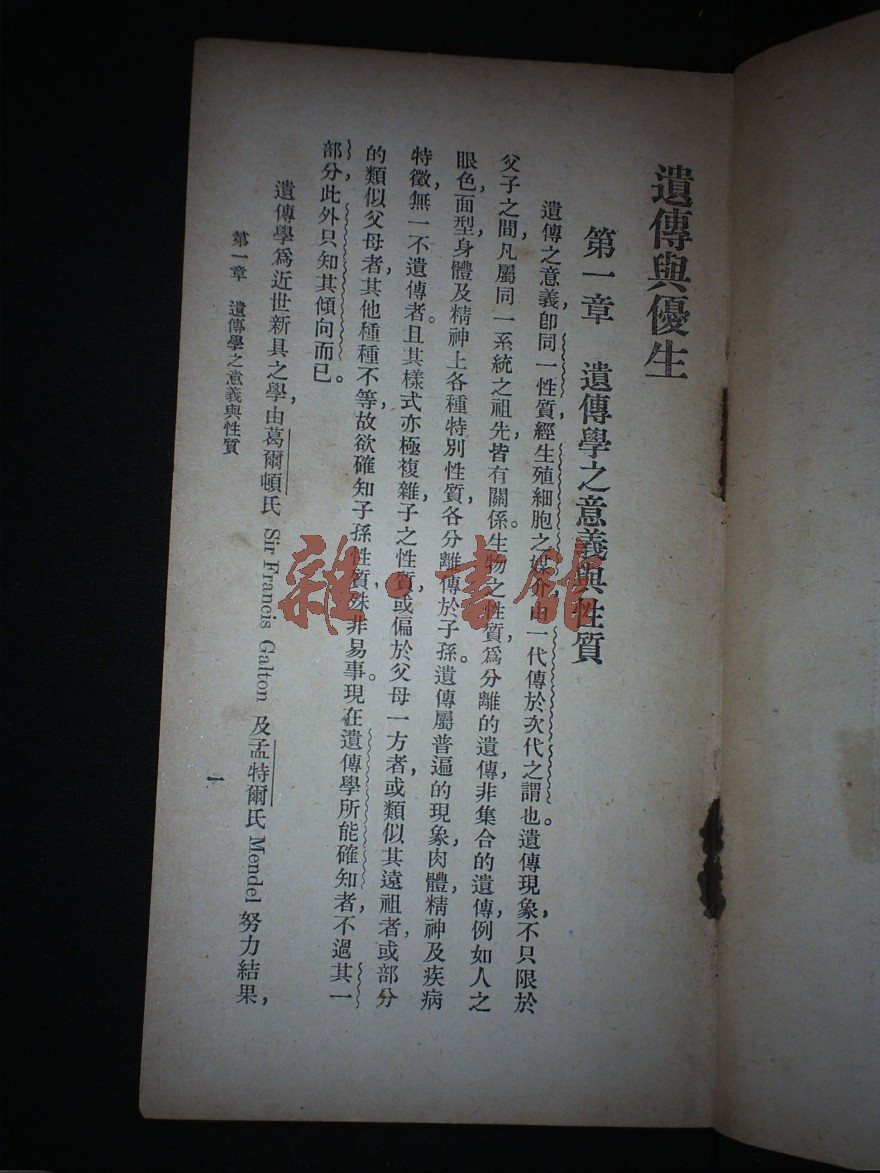 遺傳與優生
第一章　遺傳學之意義與性質
遺傳之意義，卽同一性質，經生殖細胞之媒介，由一代傳於次代之謂也。遺傳現象，不只限於
父子之間，凡屬同一系統之祖先，皆有關係。生物之性質，爲分離的遺傳，非集合的遺傳，例如人之
眼色，面型，身體及精神上各種特別性質，各分離傳於子孫。遺傳屬普遍的現象，肉體，精神及疾病
特徵，無一不遺傳者。且其樣式亦極複雜，子之性質，或偏於父母一方者，或類似其遠祖者，或部分
的類似父母者，其他種種不等，故欲確知子孫性質，殊非易事。現在遺傳學所能確知者，不過其一
部分，此外只知其傾向而已。
遺傳學爲近世新具之學，由葛爾頓氏 Sir Francis Galton 及孟特爾氏 Mendel 努力結果，
第一章　遺傳學之意義與性質
一
雜·書館